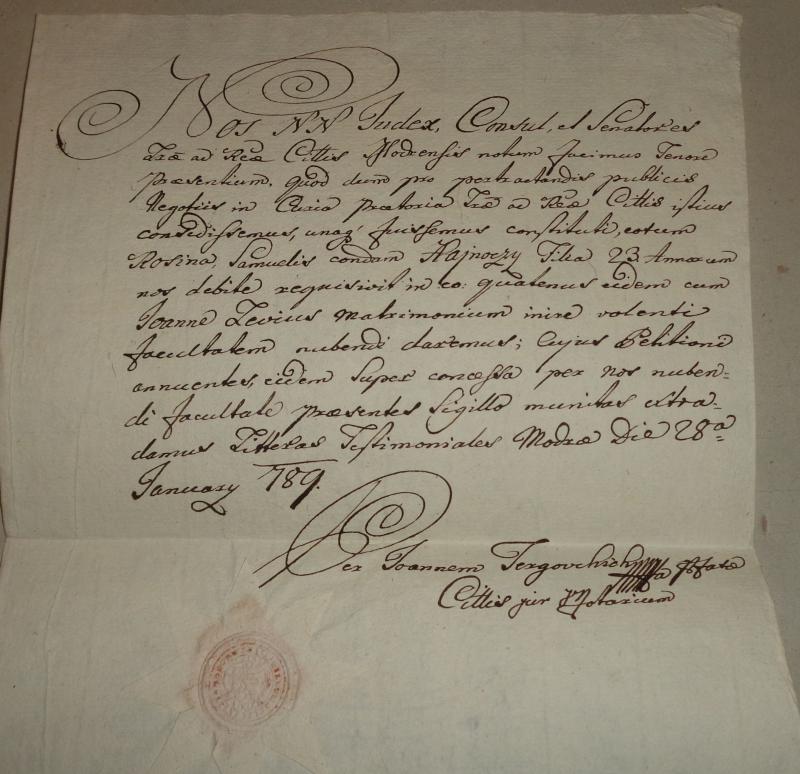 Nos NN Judex, Consul, et Senatores
Lræ ac Reæ Cittis Modrensis notum facimus Tenore
Præsentium, quod dum pro pertractandis publicis
Negotiis in Curia Prætoria Lræ ac Reæ Cittis istius
consedissemus, unaq' fuissemus constituti, eotum
Rosina, Samuelis condam Hajnoczy Filia 23. Annorum
nos debite requisivit in eo: quatenus eidem cum
Joanne Levius Matrimonium inire volenti
facultatem nubendi daremus; Cujus Petitioni
annuentes, eidem super concessa per nos nuben=
di facultate præsentes Sigillo munitas extra=
damus Litteras Testimoniales Modræ Die 28a
January 789.
Per Joannem Tergovchich
Cittis jur Notarium